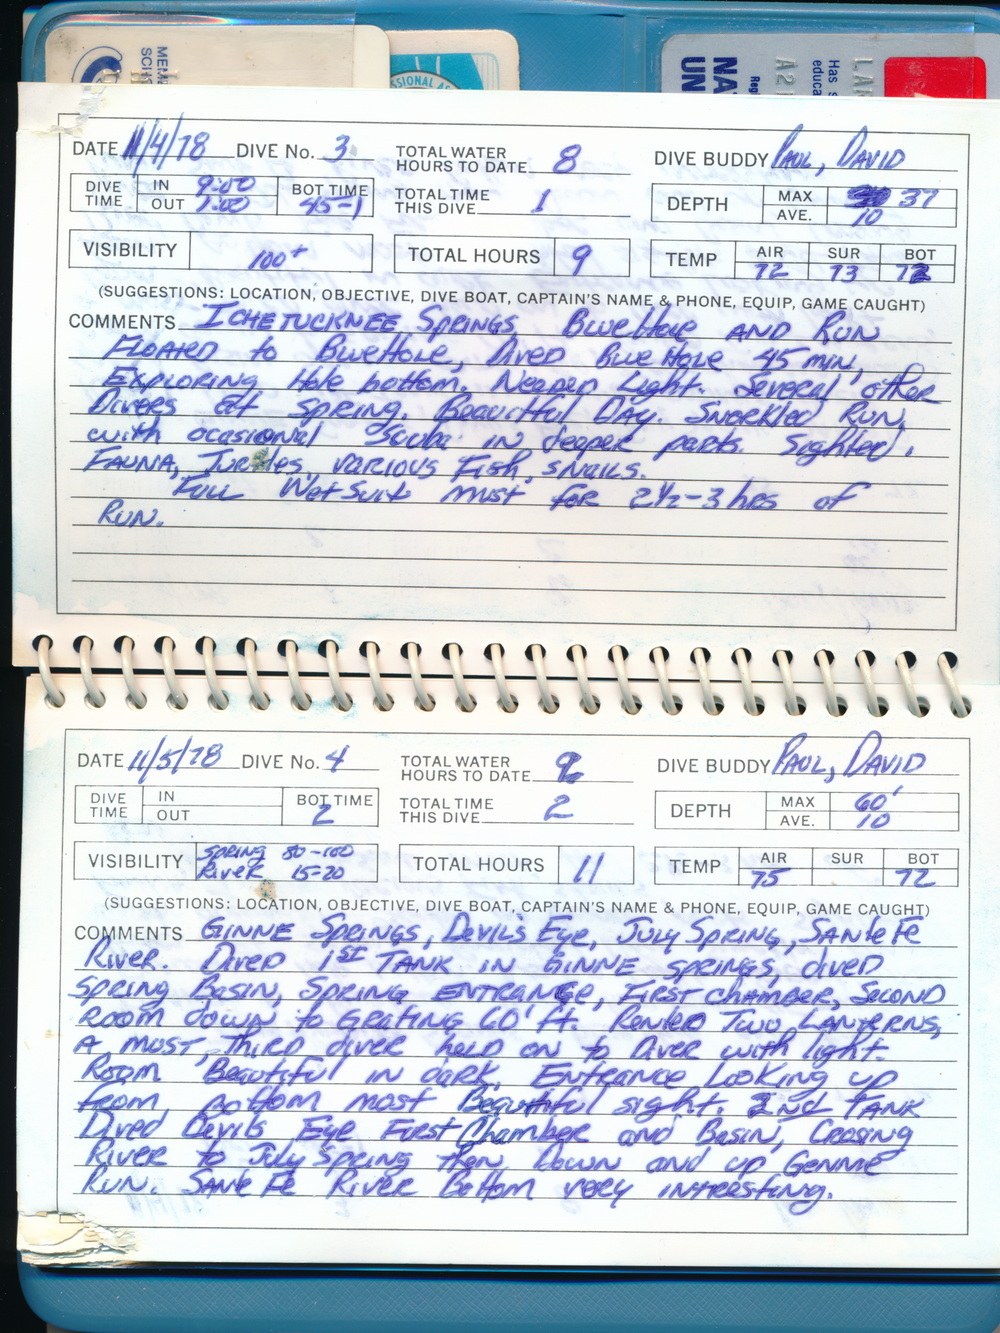 MEM
SCH
SSIONAL A
NA
UN
Reg
A21
Has s
educa
LA
DATE 11/4/78 DIVE No. 3 TOTAL WATER HOURS TO DATE 8 DIVE BUDDY PAUL, DAVID
DIVE TIME IN 9:00 OUT 1:00 BOT TIME 45-1 TOTAL TIME THIS DIVE 1 DEPTH MAX 37 AVE. 10
VISIBILITY 100+ TOTAL HOURS 9 TEMP AIR 72 SUR 73 BOT 72
(SUGGESTIONS: LOCATION, OBJECTIVE, DIVE BOAT, CAPTAIN'S NAME & PHONE, EQUIP, GAME CAUGHT)
COMMENTS ICHETUCKNEE SPRINGS BlueHole AND RUN
FLOATED to BlueHole, Dived Blue Hole 45 min,
Exploring Hole bottom. Needed Light. Several other
Divers at Spring. Beautiful Day. Snorkled Run,
with ocasional Scuba in deeper parts. Sighted,
FAUNA, Turtles, various Fish, snails.
Full Wet Suit must for 2½-3 hrs of
Run.
DATE 11/5/78 DIVE No. 4 TOTAL WATER HOURS TO DATE 9 DIVE BUDDY PAUL, DAVID
DIVE TIME IN OUT BOT TIME 2 TOTAL TIME THIS DIVE 2 DEPTH MAX 60' AVE. 10
VISIBILITY SPRING 80-100 RIVER 15-20 TOTAL HOURS 11 TEMP AIR 75 SUR BOT 72
(SUGGESTIONS: LOCATION, OBJECTIVE, DIVE BOAT, CAPTAIN'S NAME & PHONE, EQUIP, GAME CAUGHT)
COMMENTS GINNE SPRINGS, Devil's Eye, July Spring, SANte Fe
River. Dived 1ST TANK IN GINNE SPRINGS, dived
Spring Basin, SPRING ENTRANCE, FIRST chamber, Second
Room down to Grating 60' ft. Rented Two LANTERNS,
A MOST, third diver held on to Diver with light.
Room Beautiful in dark, Entrance Looking up
from bottom most Beautiful sight. 2nd TANK
Dived Devils Eye First Chamber and Basin, Crosing
River to July Spring then Down and up Gennie
Run. SANte Fe River Bottom very interesting.